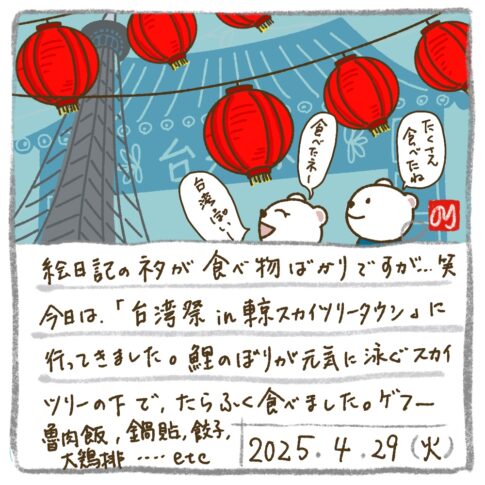 台湾祭
たくさん
食べたね
食べたネー
台湾ぽいー
絵日記のネタが食べ物ばかりですが…笑
今日は、「台湾祭 in 東京スカイツリータウン」に
行ってきました。鯉のぼりが元気に泳ぐスカイ
ツリーの下で、たらふく食べました。ゲフー
魯肉飯, 鍋貼, 餃子,
大鶏排 ..... etc
2025. 4. 29 (火)